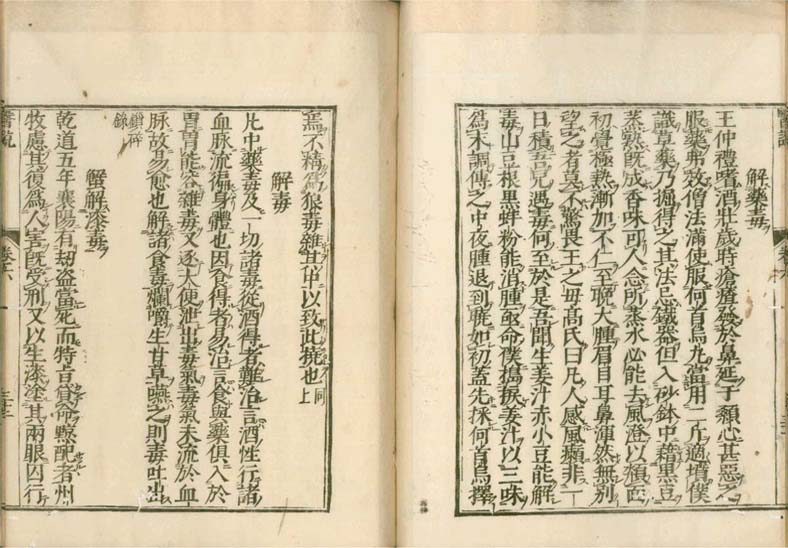 醫說
卷六
解藥毒
王仲禮嗜酒壯歲時瘡癗發於鼻延于顙心甚惡之
服藥弗效僧法滿使服何首烏丸當用二斤適墳僕
識草藥乃掘得之其法忌鐵器但入砂鉢中藉黑豆
蒸熟旣成香味可人念所蒸水必能去風澄以頮面
初覺極熱漸加不仁至晚大腫眉目耳鼻渾然無別
望之者莫不驚畏王之母高氏曰凡人感風癩非一
日積吾兒遇毒何至於是吾聞生姜汁赤小豆能解
毒山豆根黑蚌粉能消腫亟命僕搗捩姜汁以三味
爲末調傅之中夜腫退到曉如初蓋先採何首烏擇
焉不精爲狼毒雜其中以致此撓也同上
解毒
凡中藥毒及一切諸毒從酒得者難治言酒性行諸
血脉流徧身體也因食得者易治言食與藥俱入於
胃胃能容雜毒又逐大便泄出毒氣毒氣未流於血
脉故易愈也解諸食毒爛嚼生甘草嚥之則毒吐出
鎖碎
錄
蟹解漆毒
乾道五年襄陽有刼盜當死而特旨貸命黥配者州
牧慮其復爲人害旣受刑又以生漆塗其兩眼囚行
醫說
卷六
三十三